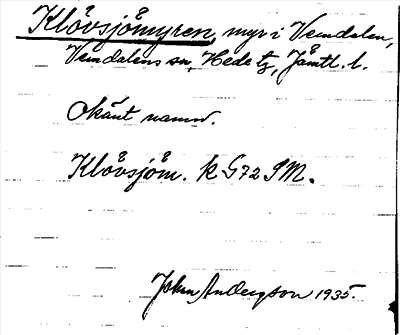 Klövsjömyren, myr i Vemdalen,
Vemdalens sn, Hede tg, Jämtl. l.
Okänt namn.
Klövsjöm. k G72 SM.
John Andersson 1935.